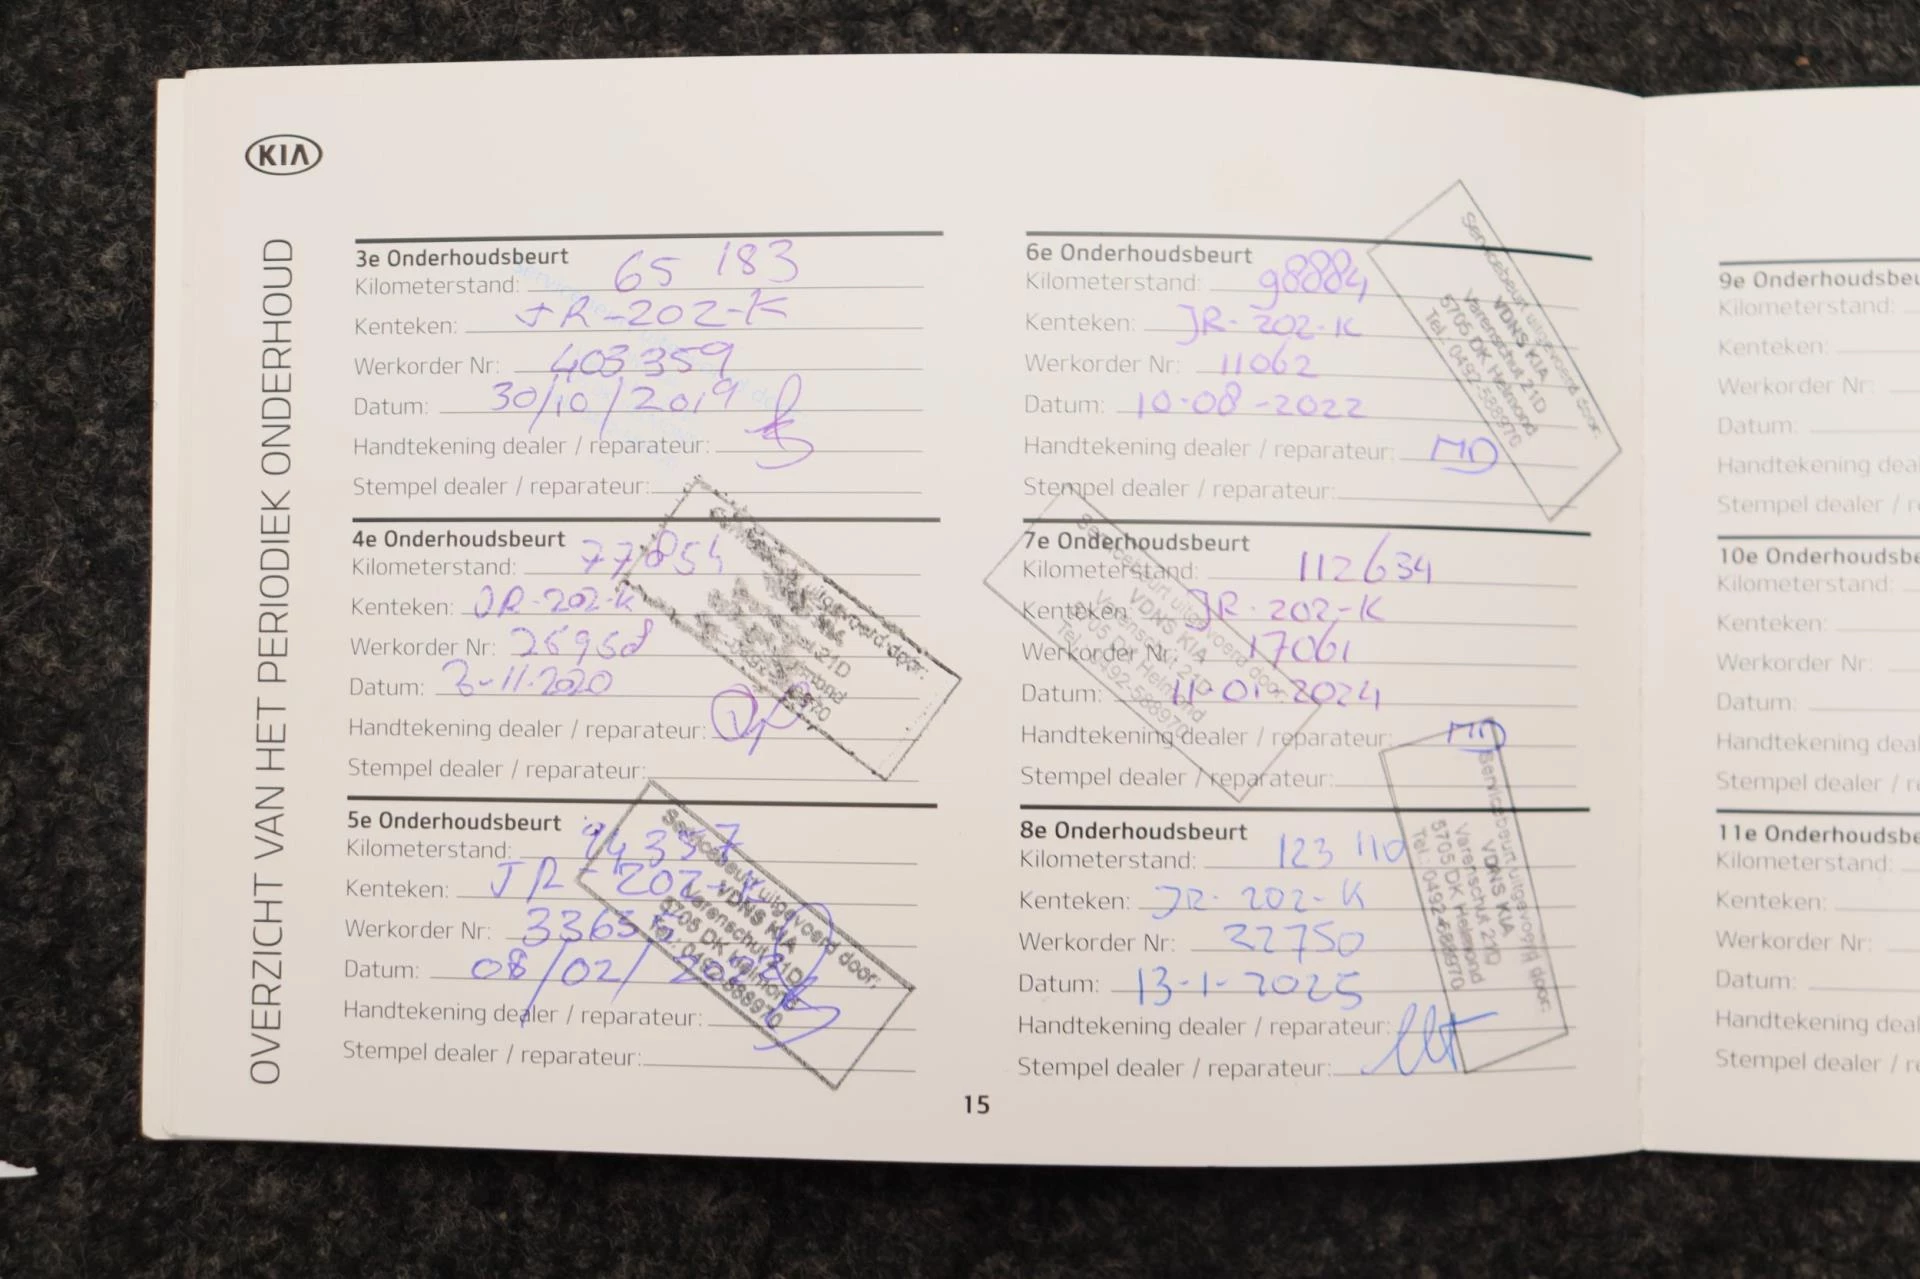 KIA
OVERZICHT VAN HET PERIODIEK ONDERHOUD
3e Onderhoudsbeurt
Kilometerstand: 65 183
Kenteken: JR-202-K
Werkorder Nr: 403359
Datum: 30/10/2019
Handtekening dealer / reparateur:
Stempel dealer / reparateur:
4e Onderhoudsbeurt
Kilometerstand: 77854
Kenteken: JR-202-K
Werkorder Nr: 26968
Datum: 3-11-2020
Handtekening dealer / reparateur:
Stempel dealer / reparateur:
uitgevoerd door:
21D
5e Onderhoudsbeurt
Kilometerstand: 94337
Kenteken: JR-202-K
Werkorder Nr:
Datum: 08/02/
Handtekening dealer / reparateur:
Stempel dealer / reparateur:
Servicebeurt uitgevoerd door:
VDNS KIA
Varenschut 21D
5705 DK Helmond
Tel.: 0492-588970
6e Onderhoudsbeurt
Kilometerstand: 98884
Kenteken: JR-202-K
Werkorder Nr: 11062
Datum: 10-08-2022
Handtekening dealer / reparateur: MD
Stempel dealer / reparateur:
Servicebeurt uitgevoerd door:
VDNS KIA
Varenschut 21D
5705 DK Helmond
Tel.: 0492-588970
7e Onderhoudsbeurt
Kilometerstand: 112634
Kenteken: JR-202-K
Werkorder Nr: 17061
Datum: 11-01-2024
Handtekening dealer / reparateur: MD
Stempel dealer / reparateur:
Servicebeurt uitgevoerd door:
VDNS KIA
Varenschut 21D
5705 DK Helmond
Tel.: 0492-588970
8e Onderhoudsbeurt
Kilometerstand: 123 110
Kenteken: JR-202-K
Werkorder Nr: 22750
Datum: 13-1-2025
Handtekening dealer / reparateur:
Stempel dealer / reparateur:
Servicebeurt uitgevoerd door:
VDNS KIA
Varenschut 21D
5705 DK Helmond
Tel.: 0492-588970
15
9e Onderhoudsbeu
Kilometerstand:
Kenteken:
Werkorder Nr:
Datum:
Handtekening deal
Stempel dealer / r
10e Onderhoudsbe
Kilometerstand:
Kenteken:
Werkorder Nr:
Datum:
Handtekening deal
Stempel dealer / re
11e Onderhoudsbe
Kilometerstand:
Kenteken:
Werkorder Nr:
Datum:
Handtekening deal
Stempel dealer / r